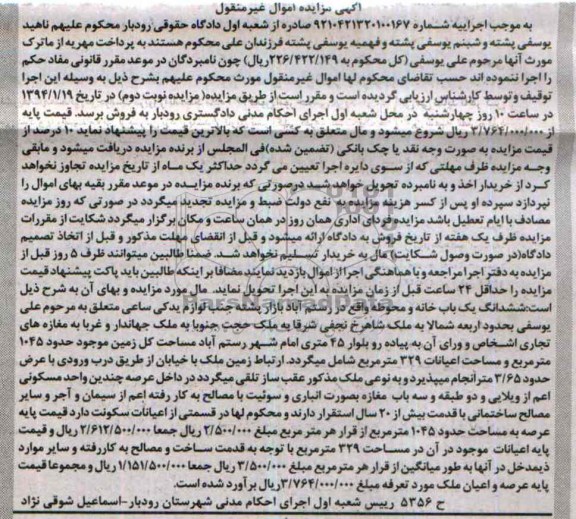 آگهی مزایده اموال غیرمنقول
به موجب اجراییه شماره ۹۲۱۰۴۲۱۳۲۰۱۰۰۱۶۷ صادره از شعبه اول دادگاه حقوقی رودبار محکوم علیهم ناهید
یوسفی پشته و شبنم یوسفی پشته و فهمیه یوسفی پشته فرزندان علی محکوم هستند به پرداخت مهریه از ماترک
مورث آنها مرحوم علی یوسفی (کل محکوم به ۲۲۶/۴۲۲/۱۴۹ریال) چون نامبردگان در موعد مقرر قانونی مفاد حکم
را اجرا ننموده اند حسب تقاضای محکوم لها اموال غیرمنقول مورث محکوم علیهم بشرح ذیل به وسیله این اجرا
توقیف و توسط کارشناس ارزیابی گردیده است و مقرر است از طریق مزایده(مزایده نوبت دوم) در تاریخ ۱۳۹۴/۱/۱۹
در ساعت ۱۰ روز چهارشنبه در محل شعبه اول اجرای احکام مدنی دادگستری رودبار به فروش برسد. قیمت پایه
از ۳/۷۶۴/۰۰۰/۰۰۰ ریال شروع میشود و مال متعلق به کسی است که بالاترین قیمت را پیشنهاد نماید ۱۰ درصد از
قیمت مزایده به صورت وجه نقد یا چک بانکی (تضمین شده)فی المجلس از برنده مزایده دریافت میشود و مابقی
وجه مزایده ظرف مهلتی که از سوی دایره اجرا تعیین می گردد حداکثر یک ماه از تاریخ مزایده تجاوز نخواهد
کرد از خریدار اخذ و به نامبرده تحویل خواهد شد درصورتی که برنده مزایده در موعد مقرر بقیه بهای اموال را
نپردازد سپرده او پس از کسر هزینه مزایده به نفع دولت ضبط و مزایده تجدید میگردد در صورتی که روز مزایده
مصادف با ایام تعطیل باشد مزایده فردای اداری همان روز در همان ساعت و مکان برگزار میگردد شکایت از مقررات
مزایده ظرف یک هفته از تاریخ فروش به دادگاه ارائه میشود و قبل از انقضای مهلت مذکور و قبل از اتخاذ تصمیم
دادگاه(در صورت وصول شکایت) مال به خریدار تسلیم نخواهد شد. ضمنا طالبین میتوانند ظرف ۵ روز قبل از
مزایده به دفتر اجرا مراجعه و با هماهنگی اجرا از اموال بازدید نمایند مضافا بر اینکه طالبین باید پاکت پیشنهاد قیمت
مزایده را حداقل ۲۴ ساعت قبل از زمان مزایده به این اجرا تحویل نمایند. مال مورد مزایده و بهای آن به شرح ذیل
است:ششدانگ یک باب خانه و محوطه واقع در رستم آباد بازار پشته جنب لوازم یدکی ساعی متعلق به مرحوم علی
یوسفی بحدود اربعه شمالا به ملک شاهرخ نجفی شرقا به ملک حجت جنوبا به ملک جهاندار و غربا به مغازه های
تجاری اشخاص و ورای آن به پیاده رو بلوار ۴۵ متری امام شهر رستم آباد مساحت کل زمین موجود حدود ۱۰۴۵
مترمربع و مساحت اعیانات ۳۲۹ مترمربع شامل میگردد. ارتباط زمین ملک با خیابان از طریق درب ورودی با عرض
حدود ۳/۶۵ مترانجام میپذیرد و به نوعی ملک مذکور عقب ساز تلقی میگردد در داخل عرصه چندین واحد مسکونی
اعم از ویلایی و دو طبقه و سه باب مغازه بصورت انباری و سوئیت با مصالح به کار رفته اعم از سیمان و آجر و سایر
مصالح ساختمانی با قدمت بیش از ۲۰ سال استقرار دارند و محکوم لها در قسمتی از اعیانات سکونت دارد قیمت پایه
عرصه به مساحت حدود ۱۰۴۵ مترمربع از قرار هر متر مربع مبلغ ۲/۵۰۰/۰۰۰ ریال جمعا ۲/۶۱۲/۵۰۰/۰۰۰ ریال و قیمت
پایه اعیانات موجود در آن در مساحت ۳۲۹ مترمربع با توجه به قدمت ساخت و مصالح به کاررفته و سایر موارد
ذیمدخل در آنها به طور میانگین از قرار هر مترمربع مبلغ ۳/۵۰۰/۰۰۰ ریال جمعا ۱/۱۵۱/۵۰۰/۰۰۰ ریال و مجموعا قیمت
پایه عرصه و اعیان ملک مورد تعرفه مبلغ ۳/۷۶۴/۰۰۰/۰۰۰ریال برآورد شده است.
ح ۵۳۵۶ رییس شعبه اول اجرای احکام مدنی شهرستان رودبار-اسماعیل شوقی نژاد